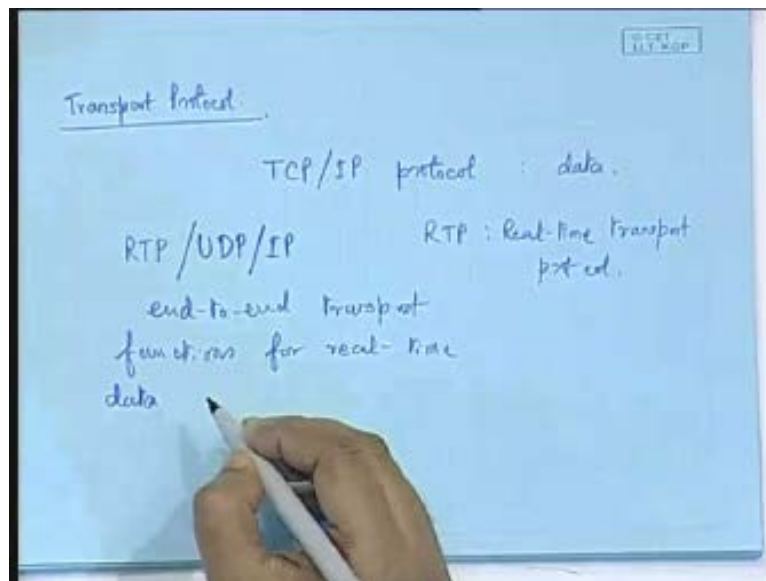 Transport Protocol.
TCP/IP protocol : data.
RTP/UDP/IP
RTP : Real-time Transport
protocol.
end-to-end transport
functions for real-time
data